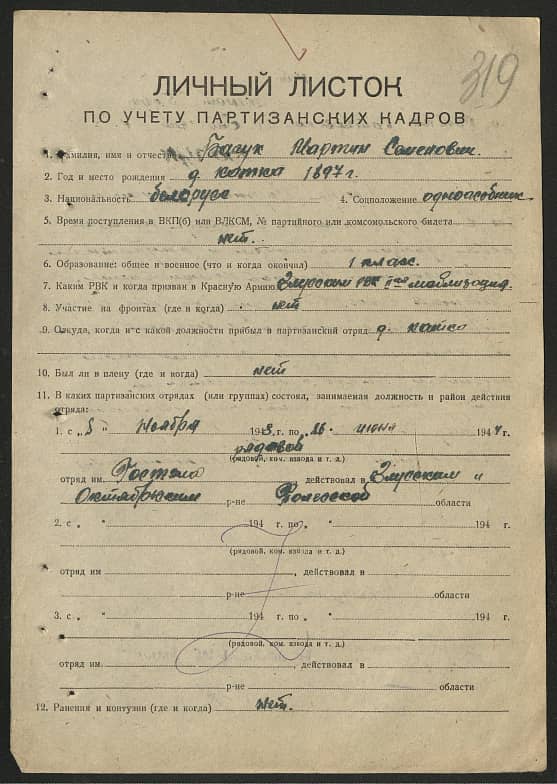 319
ЛИЧНЫЙ ЛИСТОК
ПО УЧЕТУ ПАРТИЗАНСКИХ КАДРОВ
1. Фамилия, имя и отчество Бачук Мартин Семенович.
2. Год и место рождения д. Катка 1897 г.
3. Национальность белорусс 4. Соцположение одноасобник
5. Время поступления в ВКП(б) или ВЛКСМ, № партийного или комсомольского билета
нет.
6. Образование: общее и военное (что и когда окончил) 1 класс.
7. Каким РВК и когда призван в Красную Армию Глусским РВК мабилизация.
8. Участие на фронтах (где и когда) нет
9. Откуда, когда и с какой должности прибыл в партизанский отряд д. Катка
10. Был ли в плену (где и когда) нет
11. В каких партизанских отрядах (или группах) состоял, занимаемая должность и район действия
отряда:
1. с „5 " Ноября 1943 г. по „26 „ июня 1944 г.
рядовой
(рядовой, ком. взвода и т. д.)
отряд им. Гостела действовал в Глусским и
Октябрьским р-не Полесской области
2. с „ " 194 г. по „ " 194 г.
(рядовой, ком. взвода и т. д.)
отряд им , действовал в
р-не области
3. с „ " 194 г. по „ " 194 г.
(рядовой, ком. взвода и т. д.)
отряд им. , действовал в
р-не области
12. Ранения и контузии (где и когда) нет.